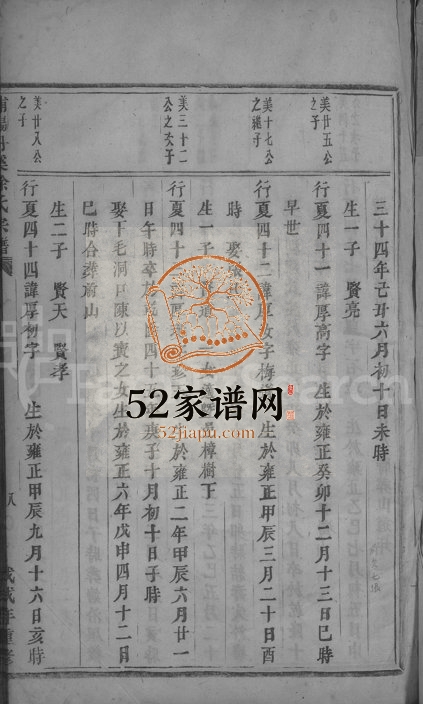 三十四年己丑六月初十日未時
生一子 賢亮
美廿五公之子
行夏四十一諱厚高字 生於雍正癸卯十二月十三日巳時
早世
美十七公之繼子
行夏四十二諱厚 字梅 生於雍正甲辰三月二十日酉
時 娶
生一子 賢道 一女 樟樹下
美三十二公之次子
行夏四十 諱厚 生於雍正二年甲辰六月廿一
日午時卒於 四十五 庚子十月初十日子時
娶下毛洞 陳以賓之女生於雍正六年戊申四月十二日
巳時合葬蔚山
生二子 賢天 賢孝
美廿八公之子
行夏四十四諱厚初字 生於雍正甲辰九月十六日亥時
徐氏宗譜
八
戊戌年重修
52家谱网
52jiapu.com